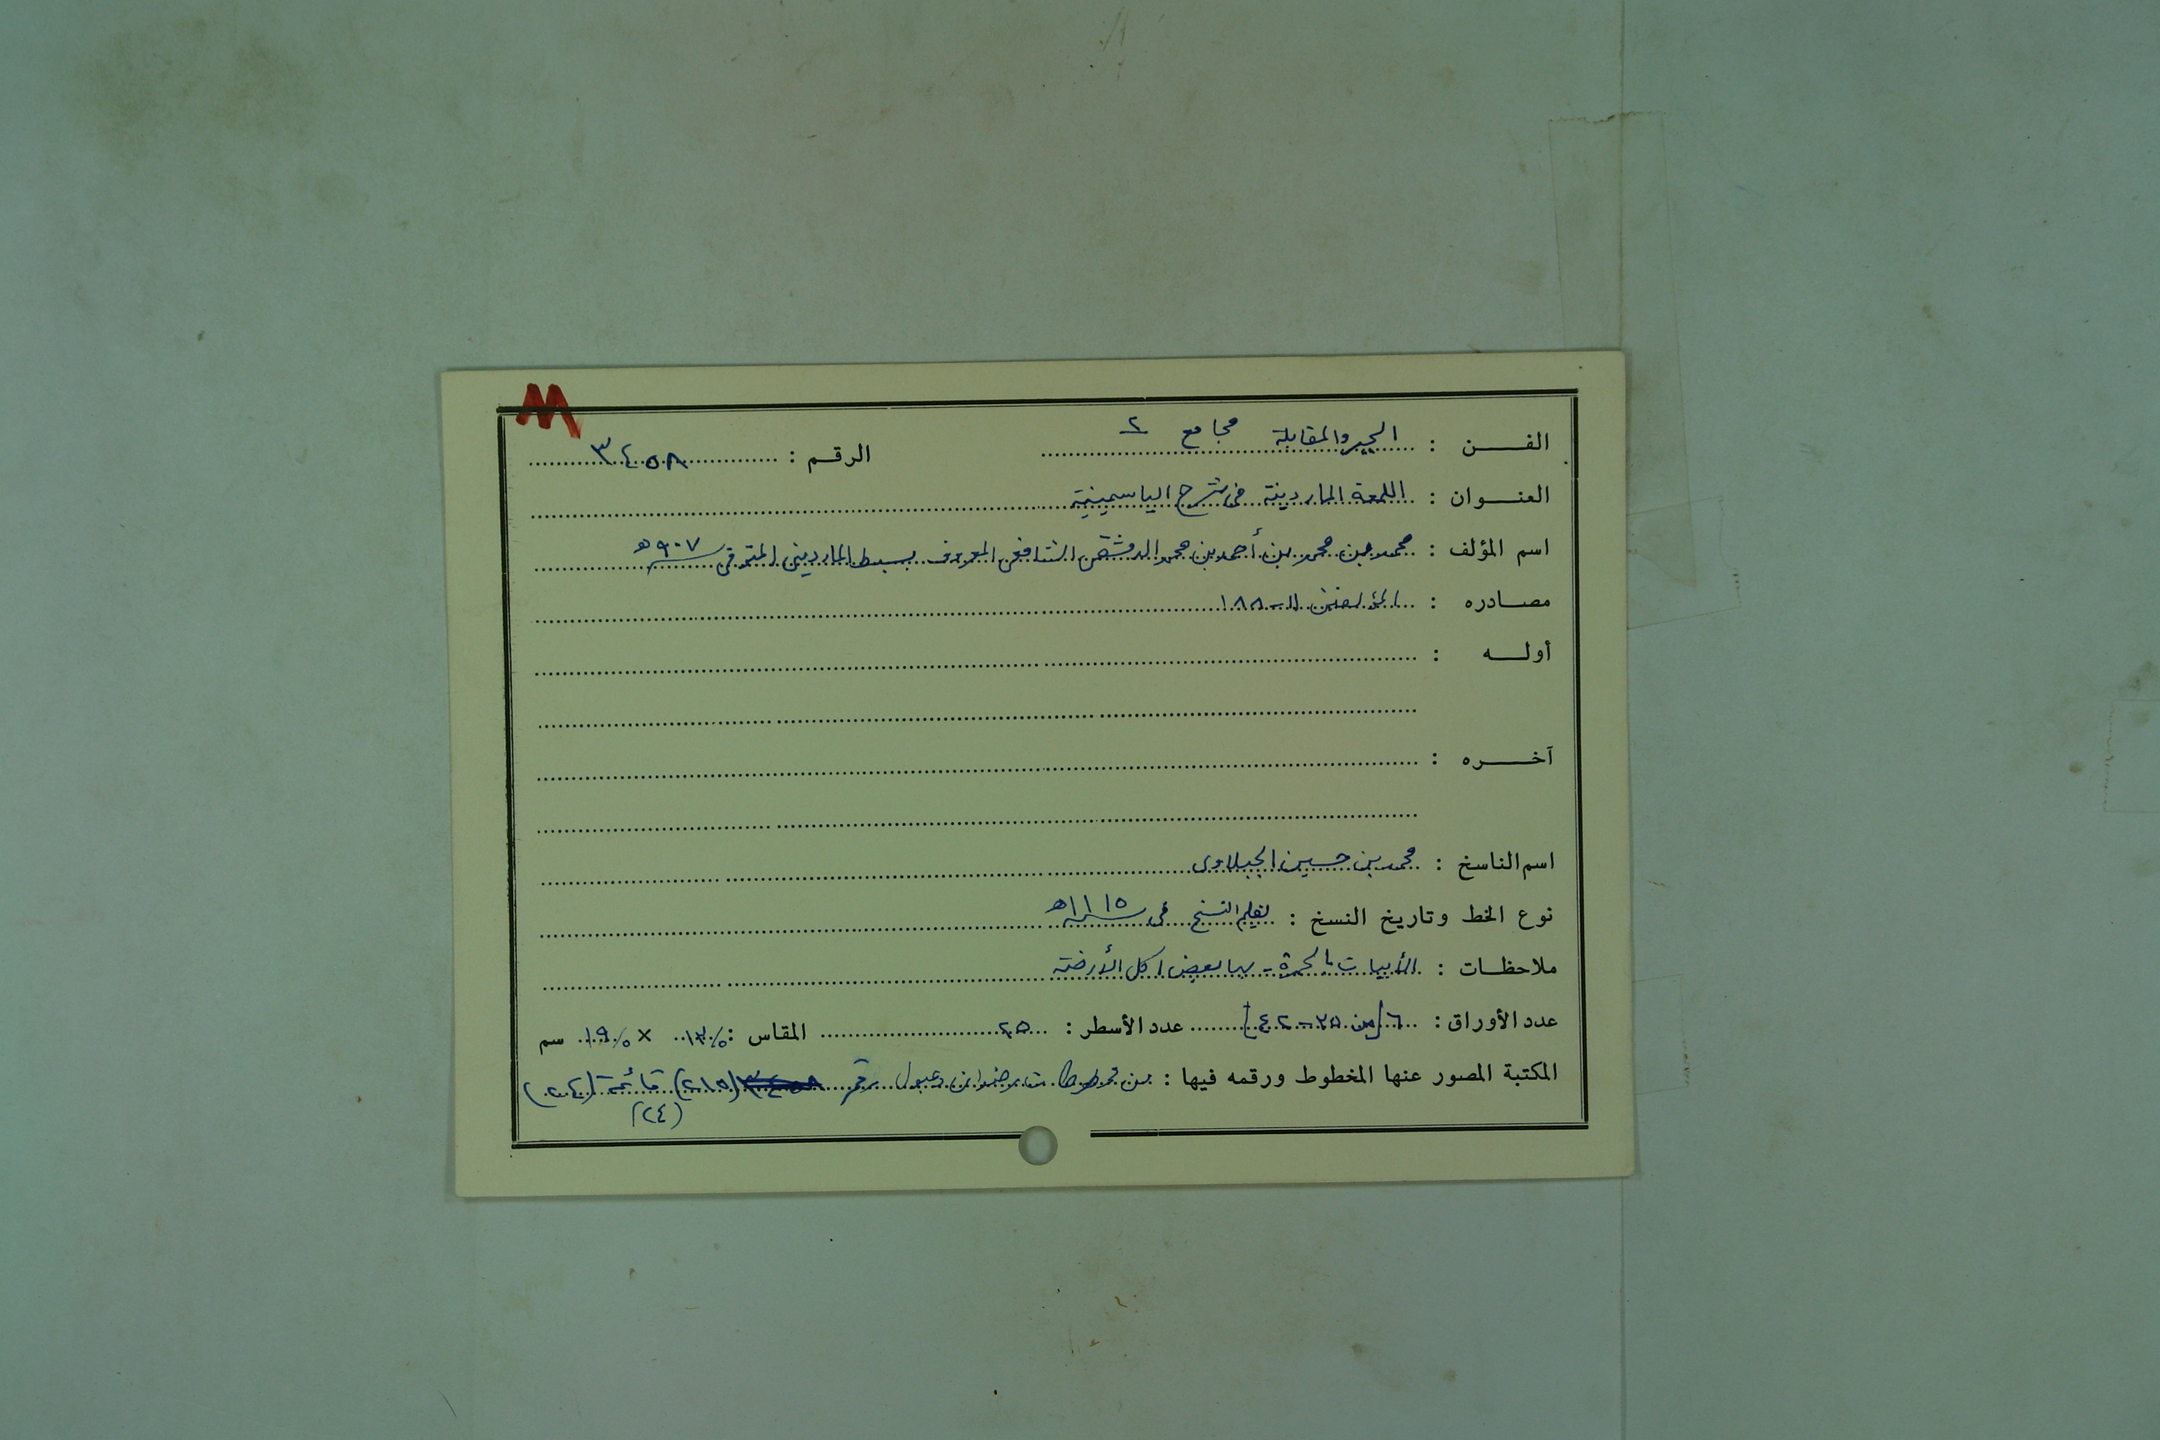 الفن : الجبر والمقابلة مجاميع ٢ الرقم : ٣٤٥٨
العنوان : اللمعة الماردينة في شرح الياسمينية
اسم المؤلف : محمد بن محمد بن أحمد بن محمد الدمشقي الشافعي المعروف بسبط المارديني المتوفى سنة ٩٠٧ هـ
مصادره : المؤلفين ١١ - ١٨٨
أوله :
آخره :
اسم الناسخ : محمد بن حسين الجبلاوى
نوع الخط وتاريخ النسخ : بقلم النسخ في سنة ١١١٥ هـ
ملاحظات : الأبيات بالحمرة - بها بعض أكل الأرضة
عدد الأوراق : ٦ [من ٣٥ - ٤٠] عدد الأسطر : ٢٥ المقاس : ١٣٪ × ١٩٪ سم
المكتبة المصور عنها المخطوط ورقمه فيها : من مخطوطات رضوان دعبول برقم (٢١٥) قائمة (٢٤)
(٢٤)